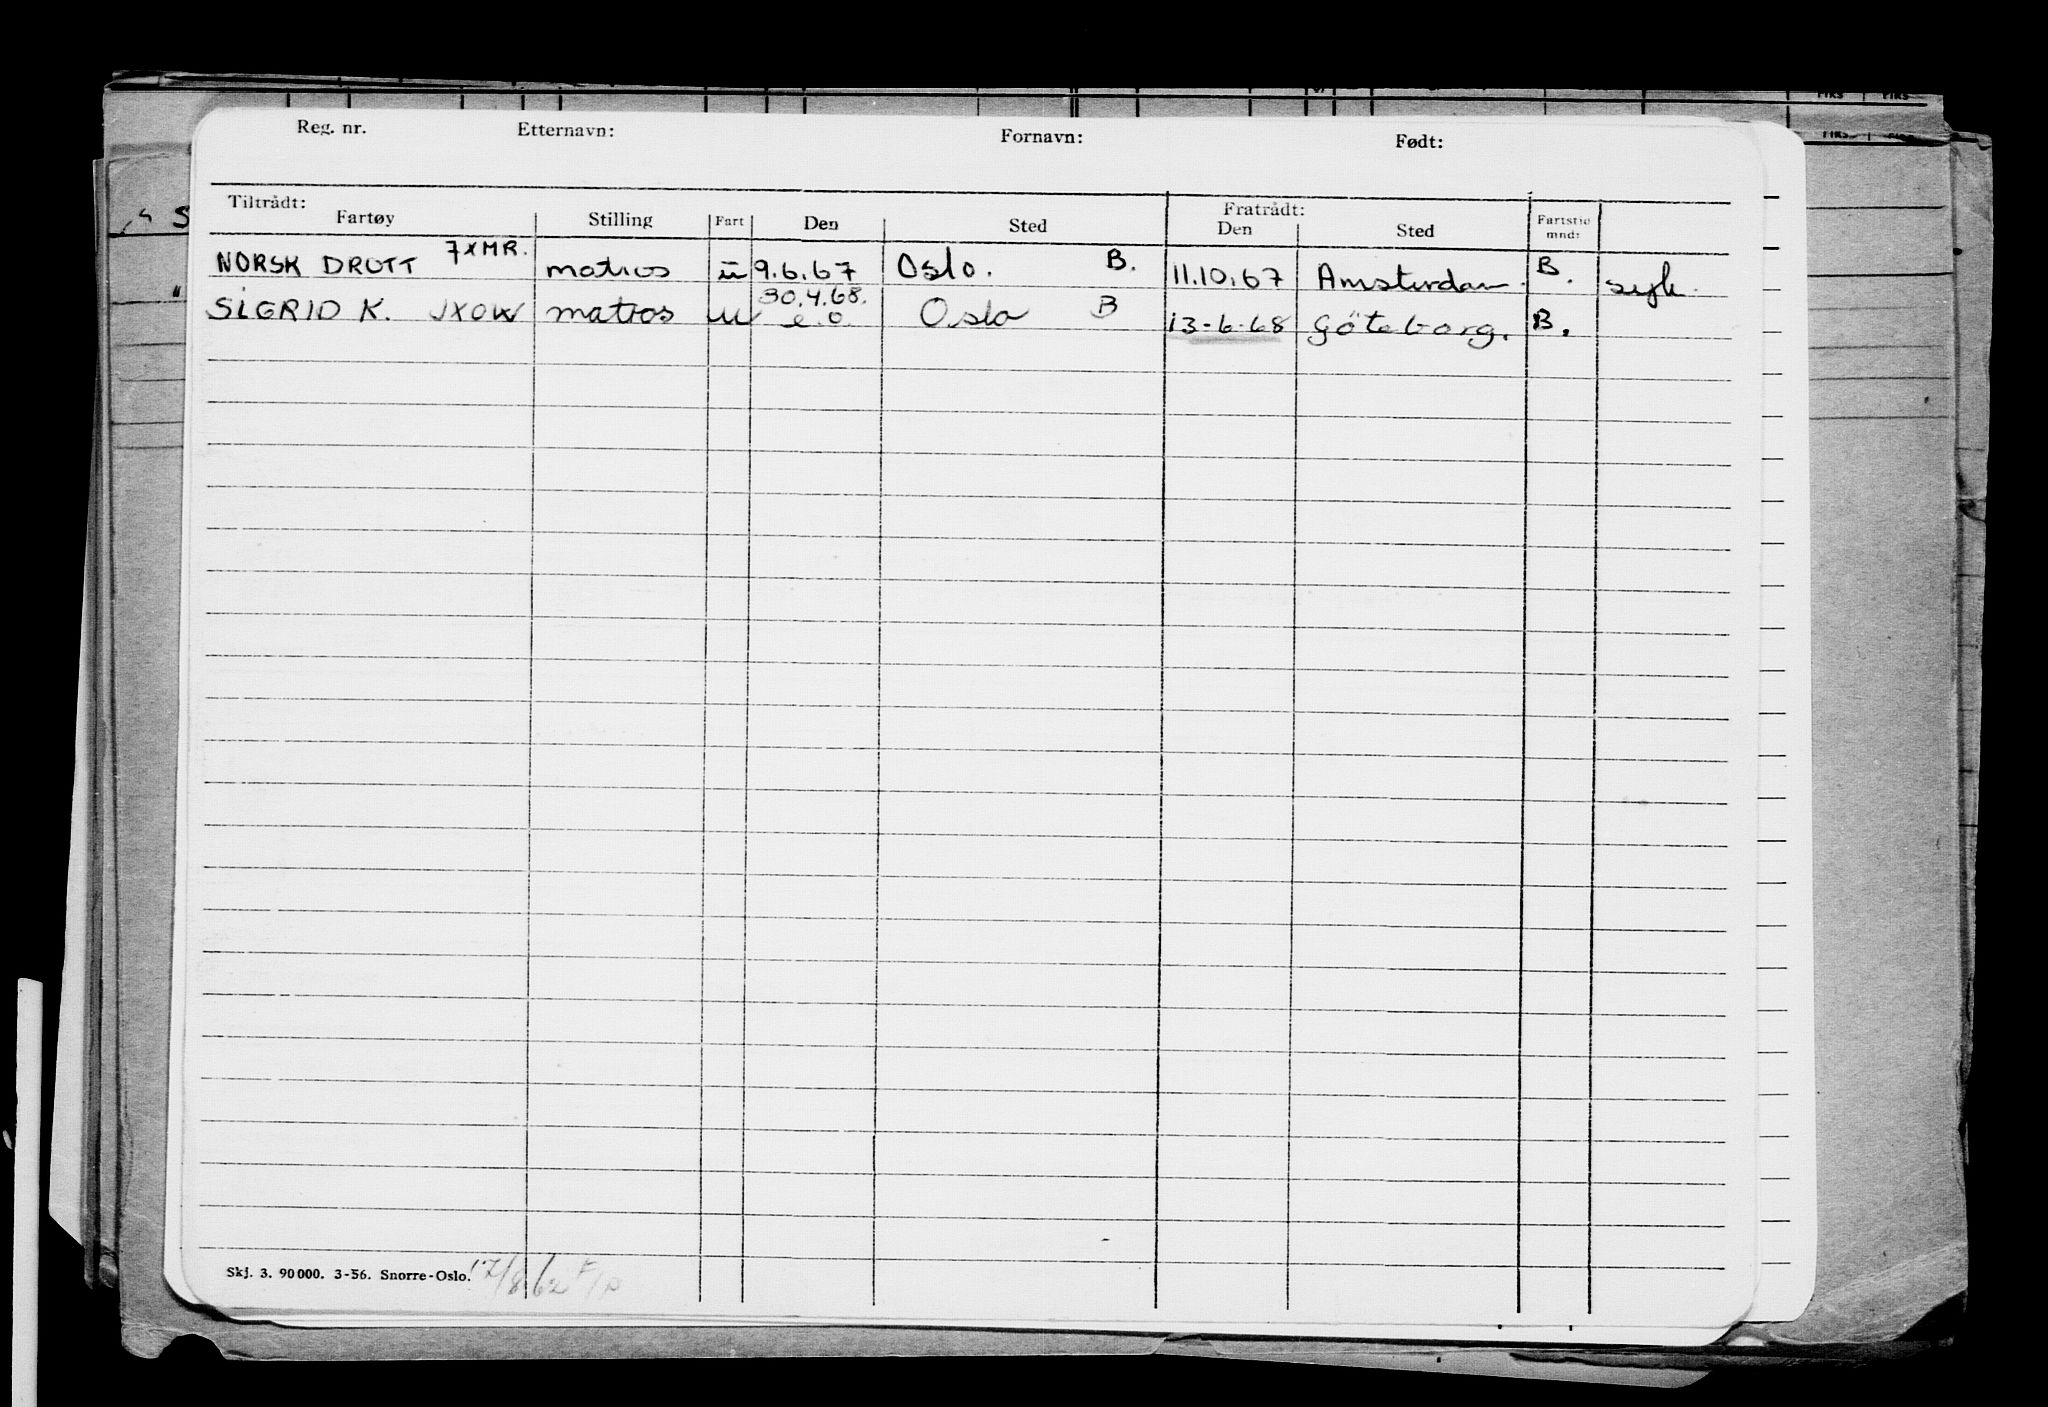 Reg. nr. Etternavn: Fornavn: Født:
Tiltrådt: Fratrådt:
Fartøy Stilling Fart Den Sted Den Sted Fartstid mnd:
NORSK DROTT 7XMR. matros u 9.6.67 Oslo. B. 11.10.67 Amsterdam. B. syk.
SIGRID K. JXOW matros u 30.4.68. e.o. Oslo B 13-6-68 Göteborg. B.
Skj. 3. 90000. 3-56. Snorre-Oslo. 17/8.62